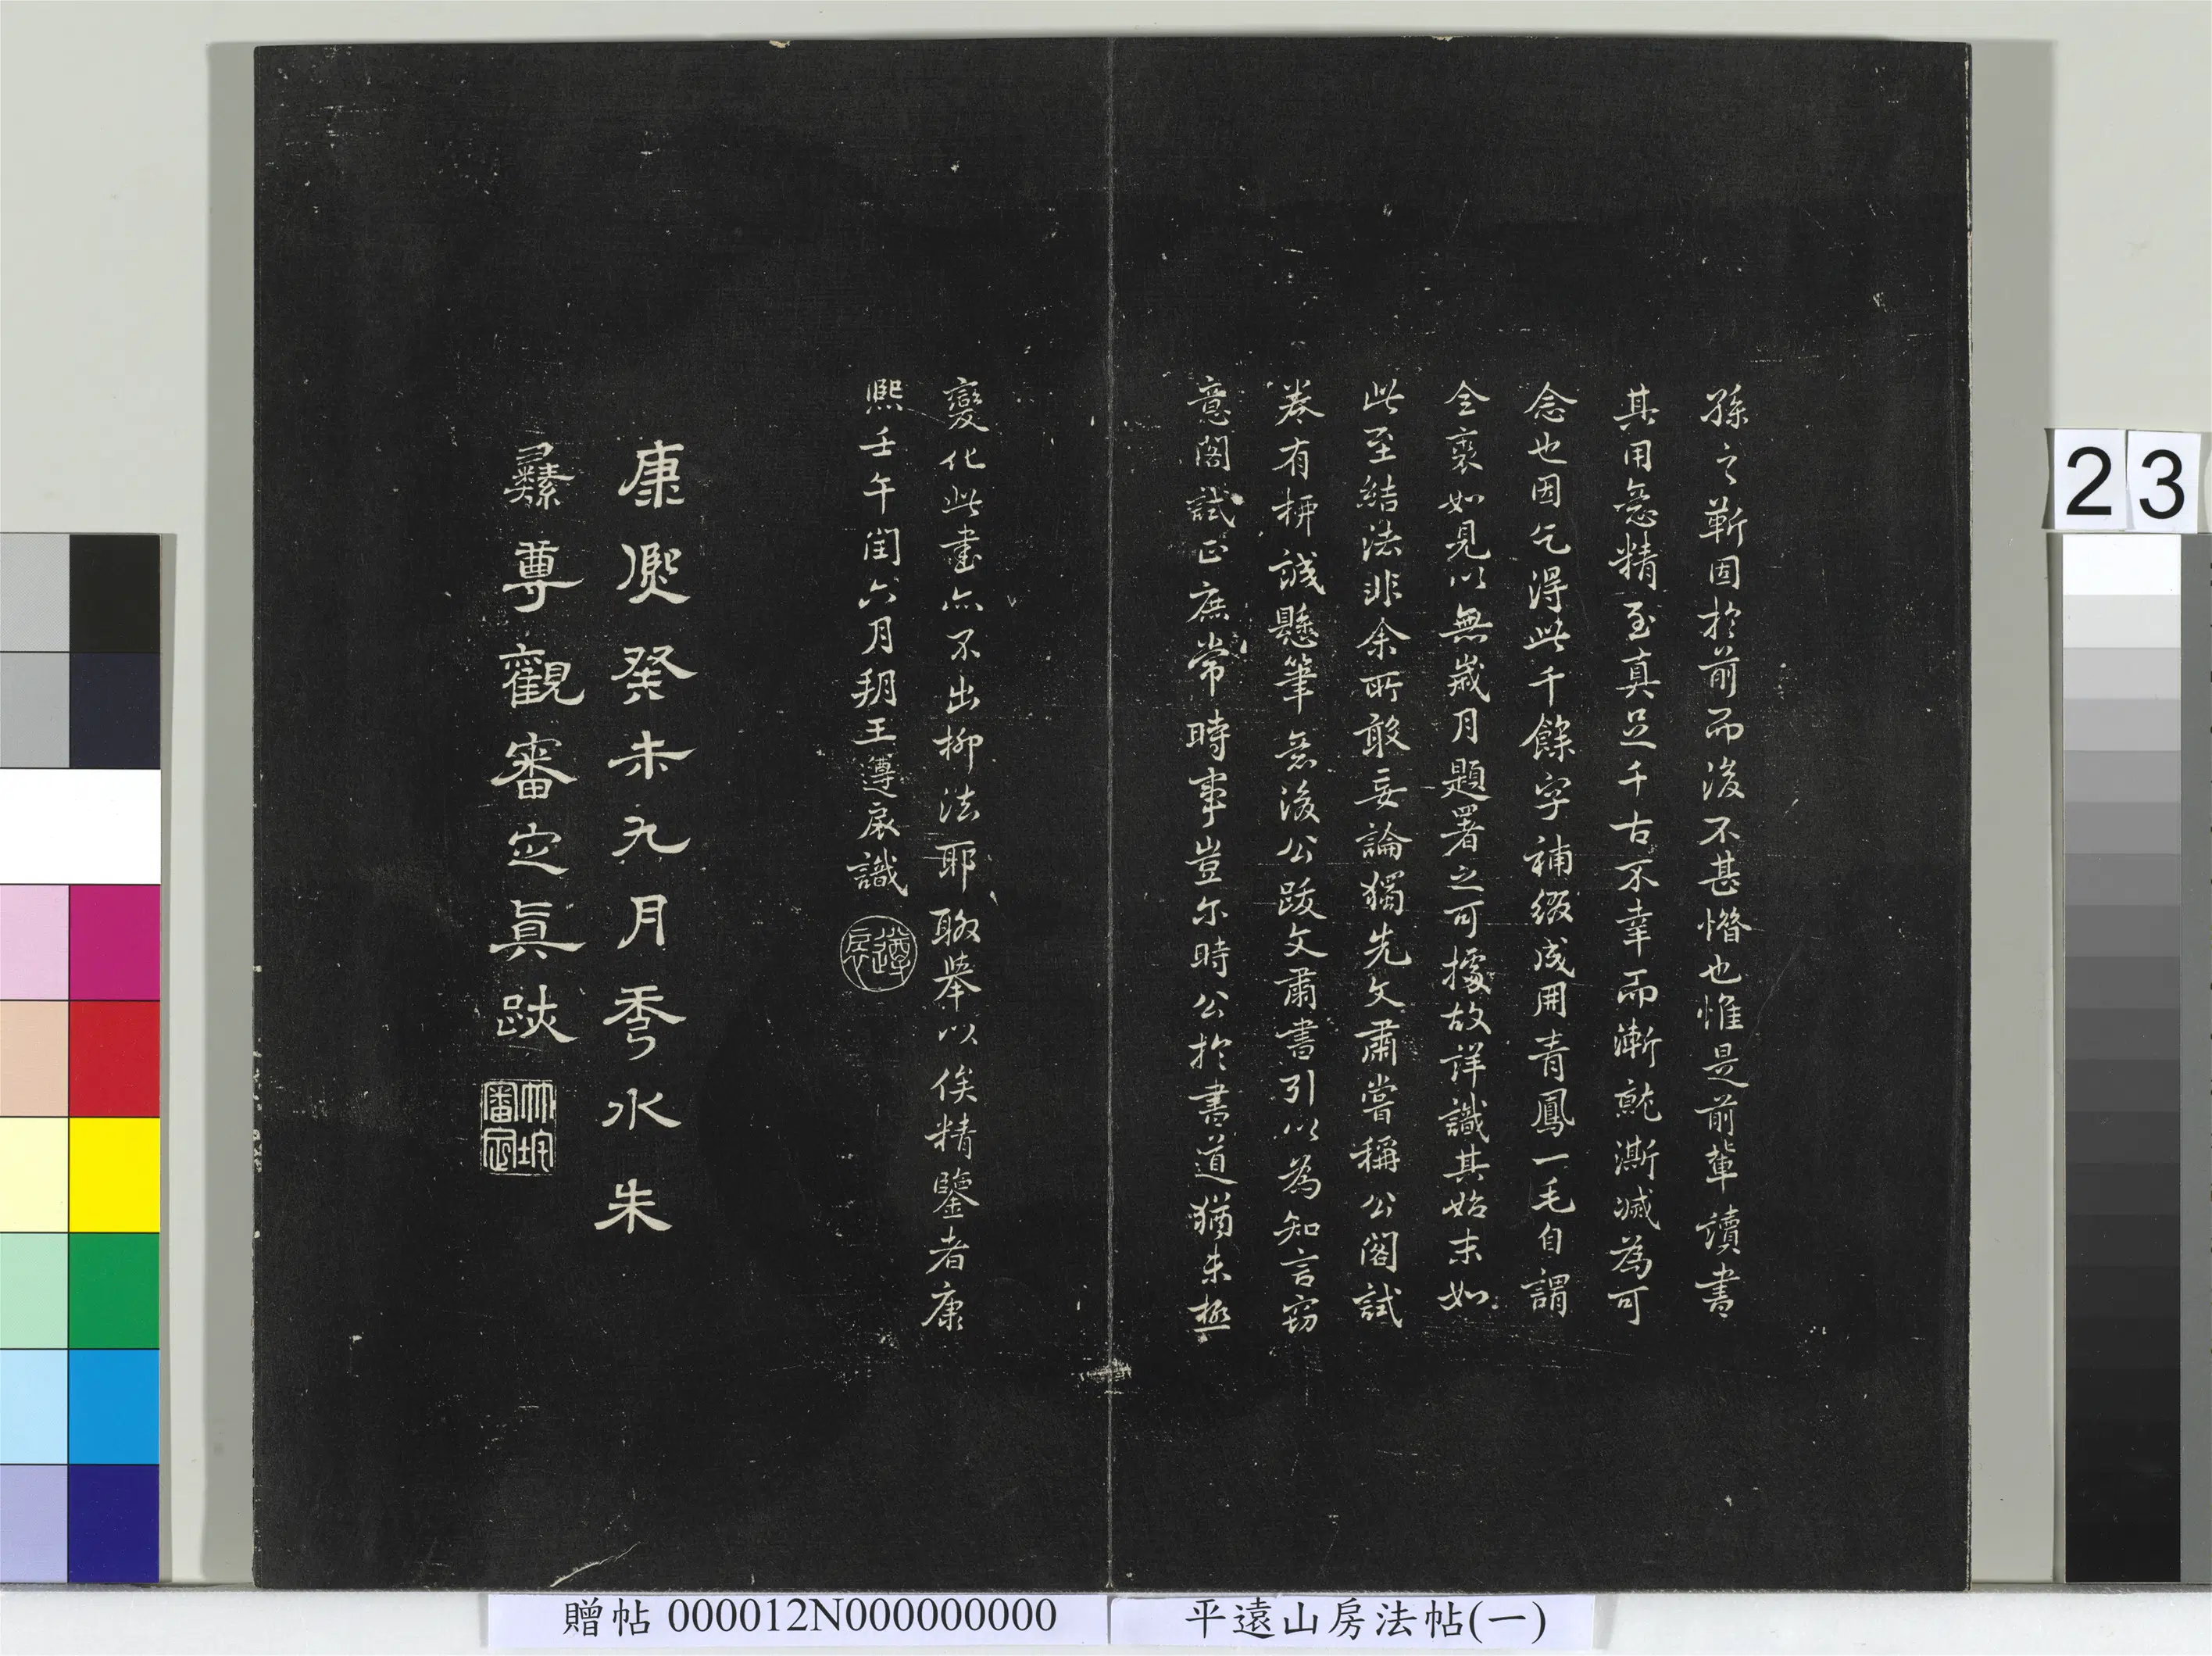 孫之蘄固於前而後不甚惜也惟是前輩讀書
其用意精至真足千古不幸而漸就澌滅為可
念也因乞得此千餘字補綴成冊青鳳一毛自謂
全裘如見以無歲月題署之可據故詳識其始末如
此至結法非余所敢妄論獨先文肅嘗稱公閣試
卷有拂誠懸筆意後公跋文肅書引以為知言竊
意閣試正庶常時事豈尔時公於書道猶未極
變化此書亦不出柳法耶聊舉以俟精鑒者康
熙壬午閏六月朔王遵扆識
遵扆
康熙癸未九月秀水朱
彝尊觀審定真跡
竹垞審定
23
贈帖 000012N000000000
平遠山房法帖(一)